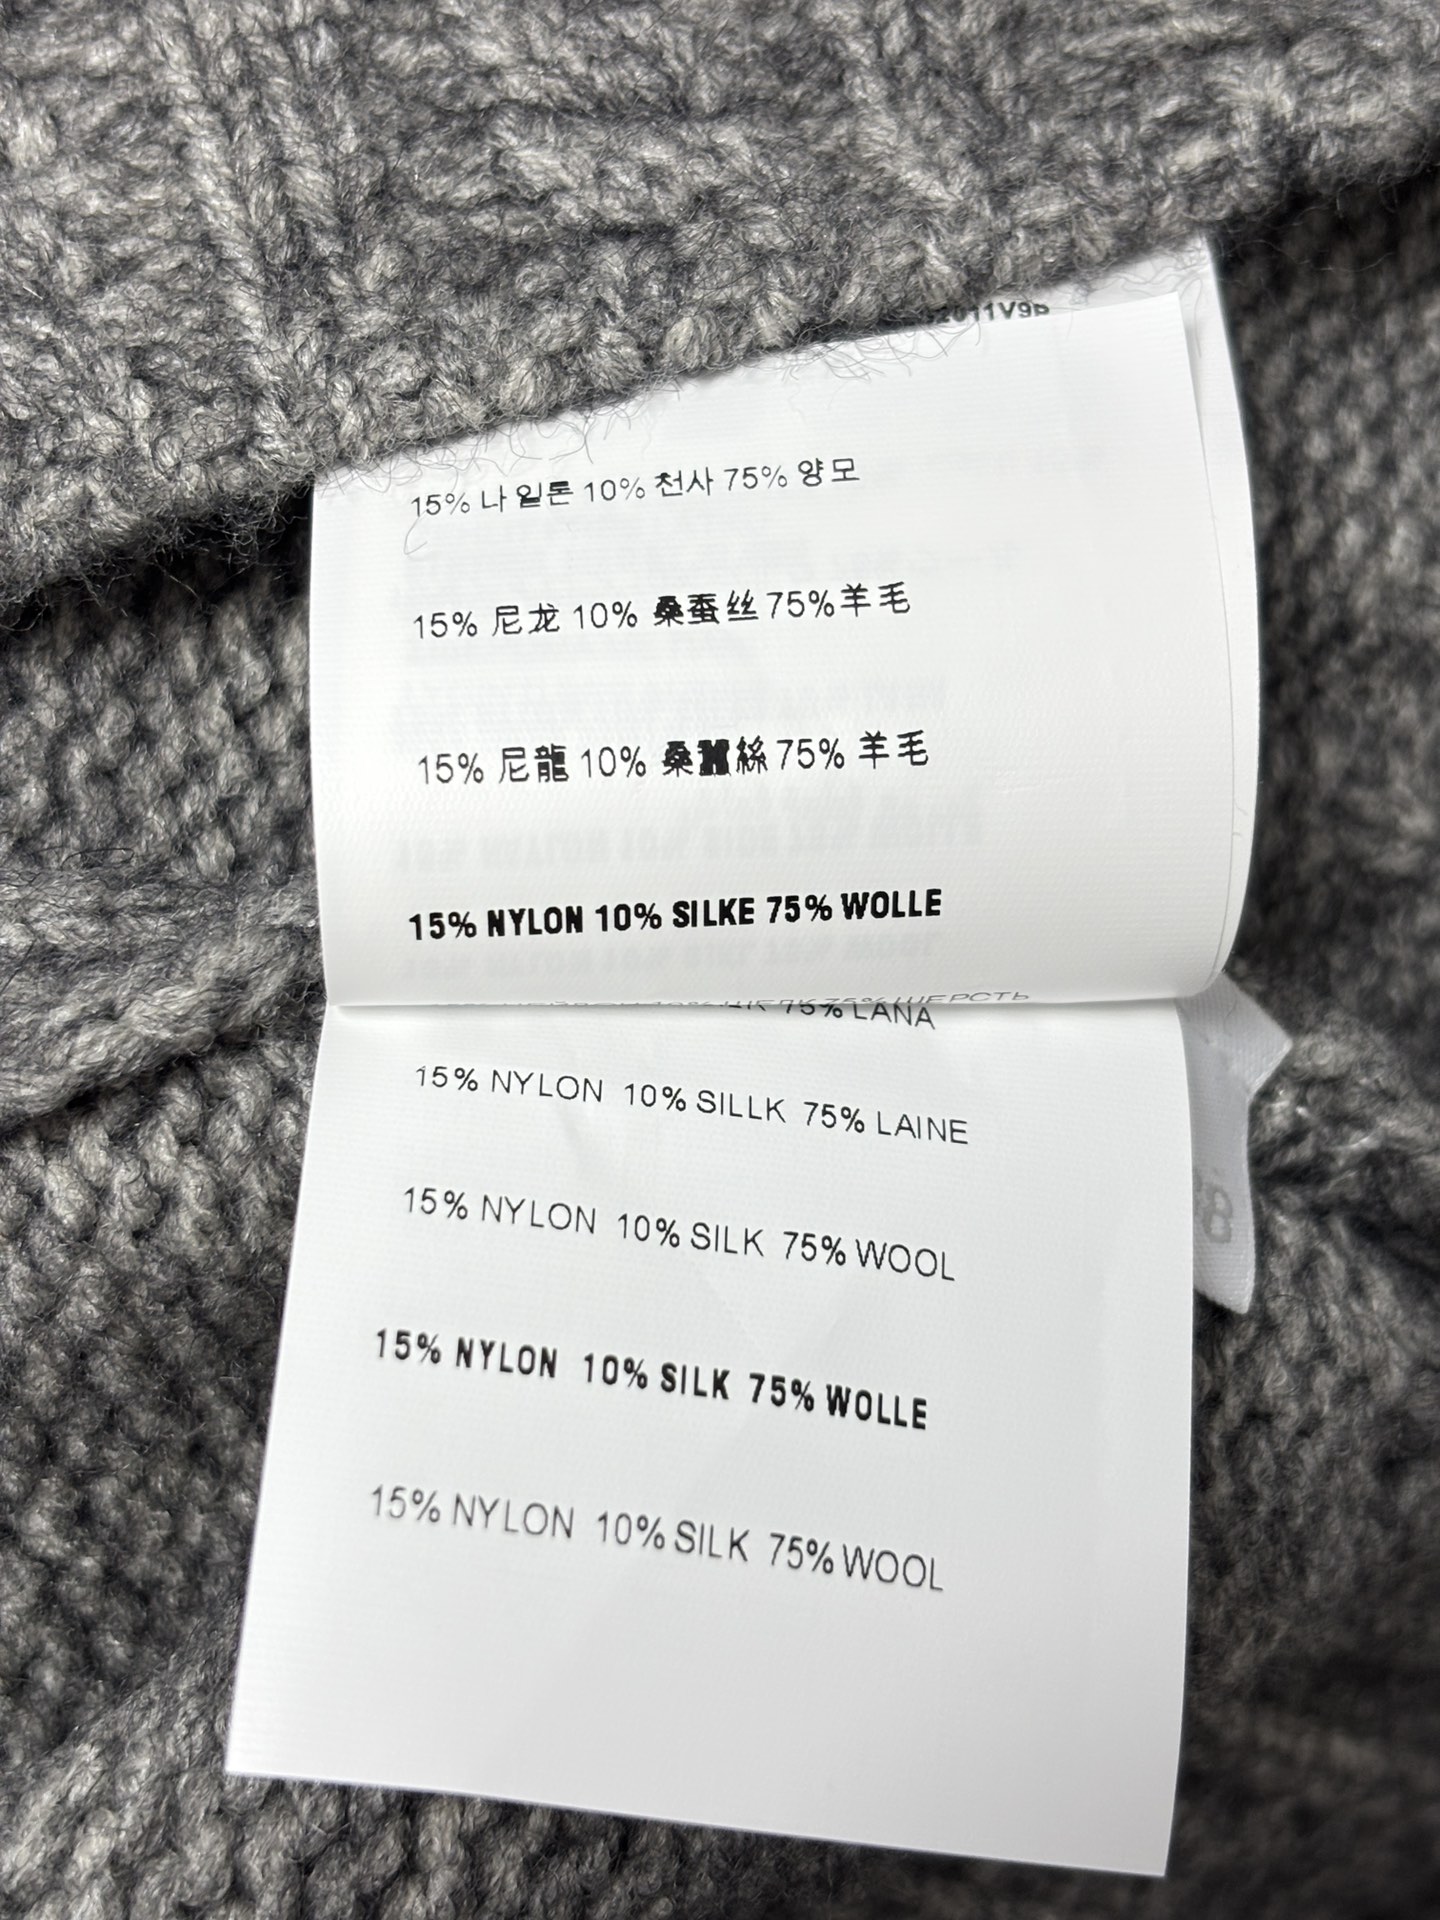 15% 나일론 10% 천사 75% 양모
15% 尼龙 10% 桑蚕丝 75% 羊毛
15% 尼龍 10% 桑蠶絲 75% 羊毛
15% NYLON 10% SILKE 75% WOLLE
75% ШЕРСТЬ
75% LANA
15% NYLON 10% SILLK 75% LAINE
15% NYLON 10% SILK 75% WOOL
15% NYLON 10% SILK 75% WOLLE
15% NYLON 10% SILK 75% WOOL